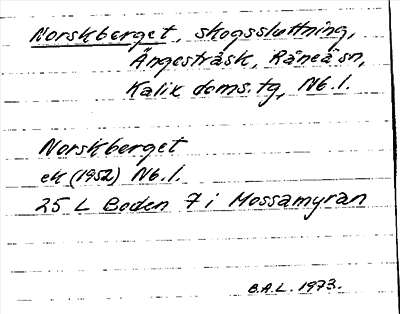 Norskberget, skogssluttning,
Ängesträsk, Råneå sn,
Kalix doms.tg, Nb.l.
Norskberget
ek (1952) Nb.l.
25 L Boden 7 i Mossamyran
B.A.L. 1973.